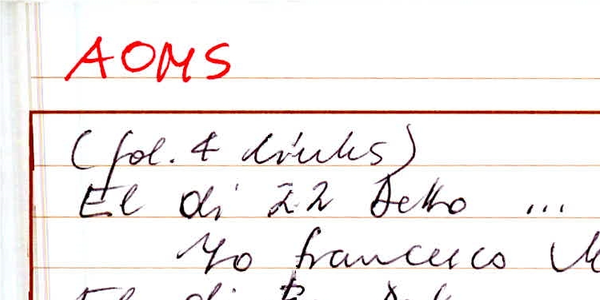 AOMS
(fol. 4 links)
El di 22 detto ...
Yo francesco
El di